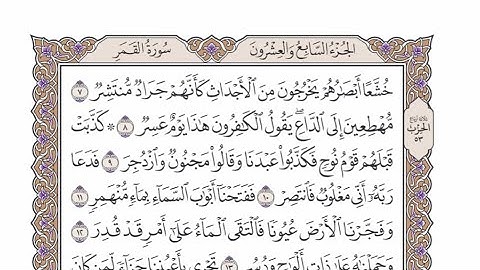 الجزء السابع والعشرون سورة القمر
خُشَّعًا أَبْصَٰرُهُمْ يَخْرُجُونَ مِنَ ٱلْأَجْدَاثِ كَأَنَّهُمْ جَرَادٌ مُّنتَشِرٌ ٧
مُّهْطِعِينَ إِلَى ٱلدَّاعِ ۖ يَقُولُ ٱلْكَٰفِرُونَ هَٰذَا يَوْمٌ عَسِرٌ ٨ ۞ كَذَّبَتْ
قَبْلَهُمْ قَوْمُ نُوحٍ فَكَذَّبُوا۟ عَبْدَنَا وَقَالُوا۟ مَجْنُونٌ وَٱزْدُجِرَ ٩ فَدَعَا
رَبَّهُۥٓ أَنِّى مَغْلُوبٌ فَٱنتَصِرْ ١٠ فَفَتَحْنَآ أَبْوَٰبَ ٱلسَّمَآءِ بِمَآءٍ مُّنْهَمِرٍ ١١
وَفَجَّرْنَا ٱلْأَرْضَ عُيُونًا فَٱلْتَقَى ٱلْمَآءُ عَلَىٰٓ أَمْرٍ قَدْ قُدِرَ ١٢
وَحَمَلْنَٰهُ عَلَىٰ ذَاتِ أَلْوَٰحٍ وَدُسُرٍ ١٣ تَجْرِى بِأَعْيُنِنَا جَزَآءً لِّمَن كَانَ
الحزب
٥٣